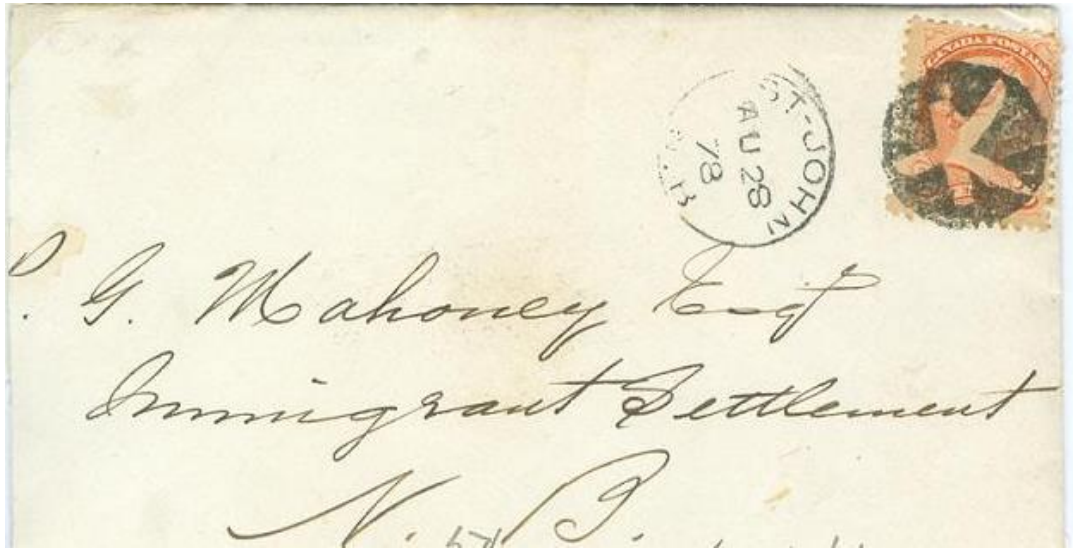 CANADA POSTAGE
ST-JOHN
AU 28
78
N.B
P. G. Mahoney Esqr
Immigrant Settlement
N. B.